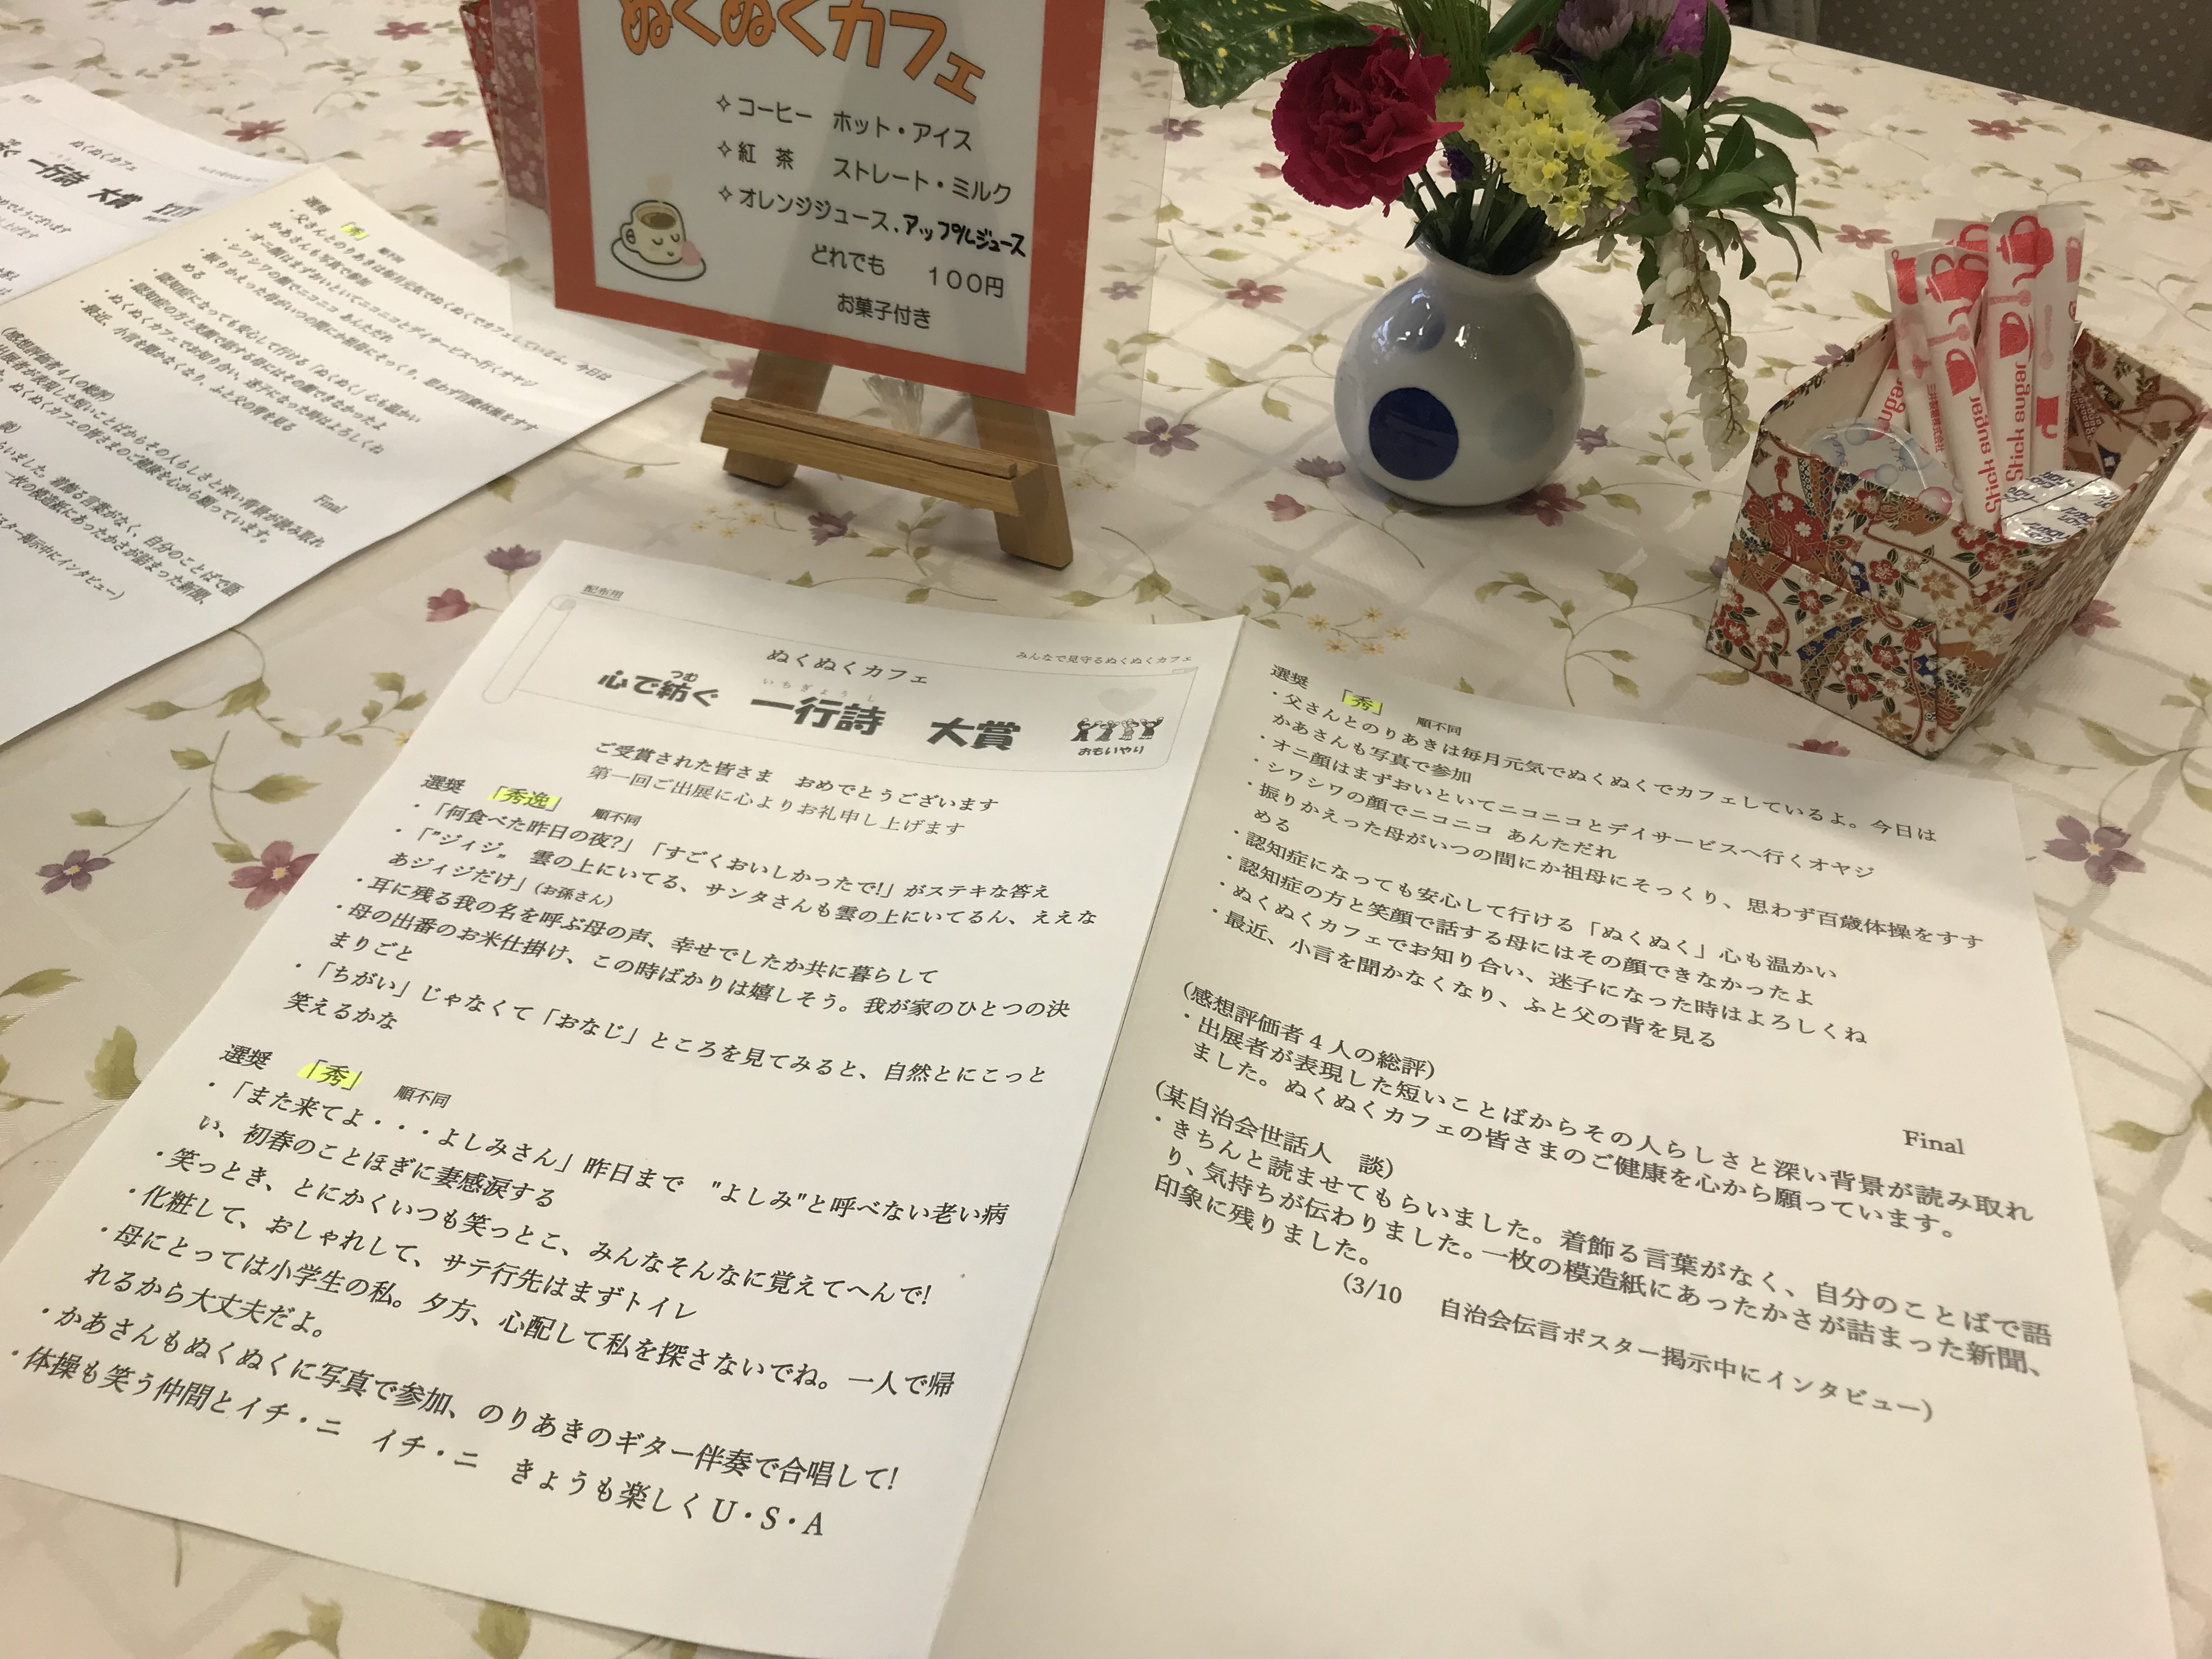 ぬくぬくカフェ
✧コーヒー ホット・アイス
✧紅 茶 ストレート・ミルク
✧オレンジジュース、アップルジュース
どれでも 100円
お菓子付き
Stick sugar
配布用
みんなで見守るぬくぬくカフェ
ぬくぬくカフェ
心で紡ぐ 一行詩 大賞
つむ
いちぎょうし
おもいやり
ご受賞された皆さま おめでとうございます
第一回ご出展に心よりお礼申し上げます
選奨 「秀逸」 順不同
・「何食べた昨日の夜?」「すごくおいしかったで!」がステキな答え
・「”ジィジ” 雲の上にいてる、サンタさんも雲の上にいてるん、ええな
あジィジだけ」(お孫さん)
・耳に残る我の名を呼ぶ母の声、幸せでしたか共に暮らして
・母の出番のお米仕掛け、この時ばかりは嬉しそう。我が家のひとつの決
まりごと
・「ちがい」じゃなくて「おなじ」ところを見てみると、自然とにこっと
笑えるかな
選奨 「秀」 順不同
・「また来てよ・・・よしみさん」昨日まで "よしみ"と呼べない老い病
い、初春のことほぎに妻感涙する
・笑っとき、とにかくいつも笑っとこ、みんなそんなに覚えてへんで!
・化粧して、おしゃれして、サテ行先はまずトイレ
・母にとっては小学生の私。夕方、心配して私を探さないでね。一人で帰
れるから大丈夫だよ。
・かあさんもぬくぬくに写真で参加、のりあきのギター伴奏で合唱して!
・体操も笑う仲間とイチ・ニ イチ・ニ きょうも楽しくU・S・A
選奨 「秀」 順不同
・父さんとのりあきは毎月元気でぬくぬくでカフェしているよ。今日は
かあさんも写真で参加
・オニ顔はまずおいといてニコニコとデイサービスへ行くオヤジ
・シワシワの顔でニコニコ あんただれ
・振りかえった母がいつの間にか祖母にそっくり、思わず百歳体操をすす
める
・認知症になっても安心して行ける「ぬくぬく」心も温かい
・認知症の方と笑顔で話する母にはその顔できなかったよ
・ぬくぬくカフェでお知り合い、迷子になった時はよろしくね
・最近、小言を聞かなくなり、ふと父の背を見る
Final
(感想評価者4人の総評)
・出展者が表現した短いことばからその人らしさと深い背景が読み取れ
ました。ぬくぬくカフェの皆さまのご健康を心から願っています。
(某自治会世話人 談)
・きちんと読ませてもらいました。着飾る言葉がなく、自分のことばで語
り、気持ちが伝わりました。一枚の模造紙にあったかさが詰まった新聞、
印象に残りました。
(3/10 自治会伝言ポスター掲示中にインタビュー)